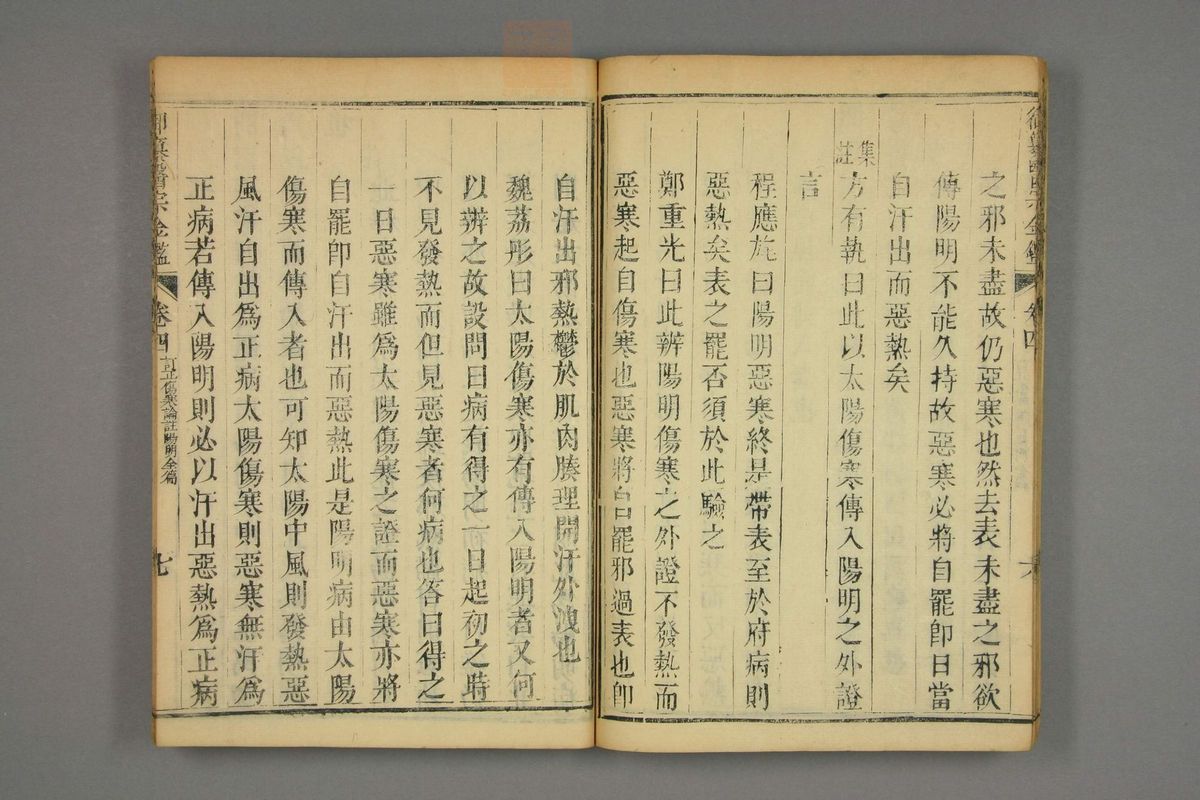 之邪未盡故仍惡寒也然去表未盡之邪欲
傳陽明不能久持故惡寒必將自罷卽日當
自汗出而惡熱矣
集註
方有執曰此以太陽傷寒傳入陽明之外證
言
程應旄曰陽明惡寒終是帶表至於府病則
惡熱矣表之罷否須於此驗之
鄭重光曰此辨陽明傷寒之外證不發熱而
惡寒起自傷寒也惡寒將自罷邪過表也卽
自汗出邪熱鬱於肌肉腠理開汗外洩也
魏荔彤曰太陽傷寒亦有傳入陽明者又何
以辨之故設問曰病有得之一日起初之時
不見發熱而但見惡寒者何病也答曰得之
一日惡寒雖爲太陽傷寒之證而惡寒亦將
自罷卽自汗出而惡熱此是陽明病由太陽
傷寒而傳入者也可知太陽中風則發熱惡
風汗自出爲正病太陽傷寒則惡寒無汗爲
正病若傳入陽明則必以汗出惡熱爲正病
御纂醫宗金鑑
卷四
訂正傷寒論註陽明全篇
七